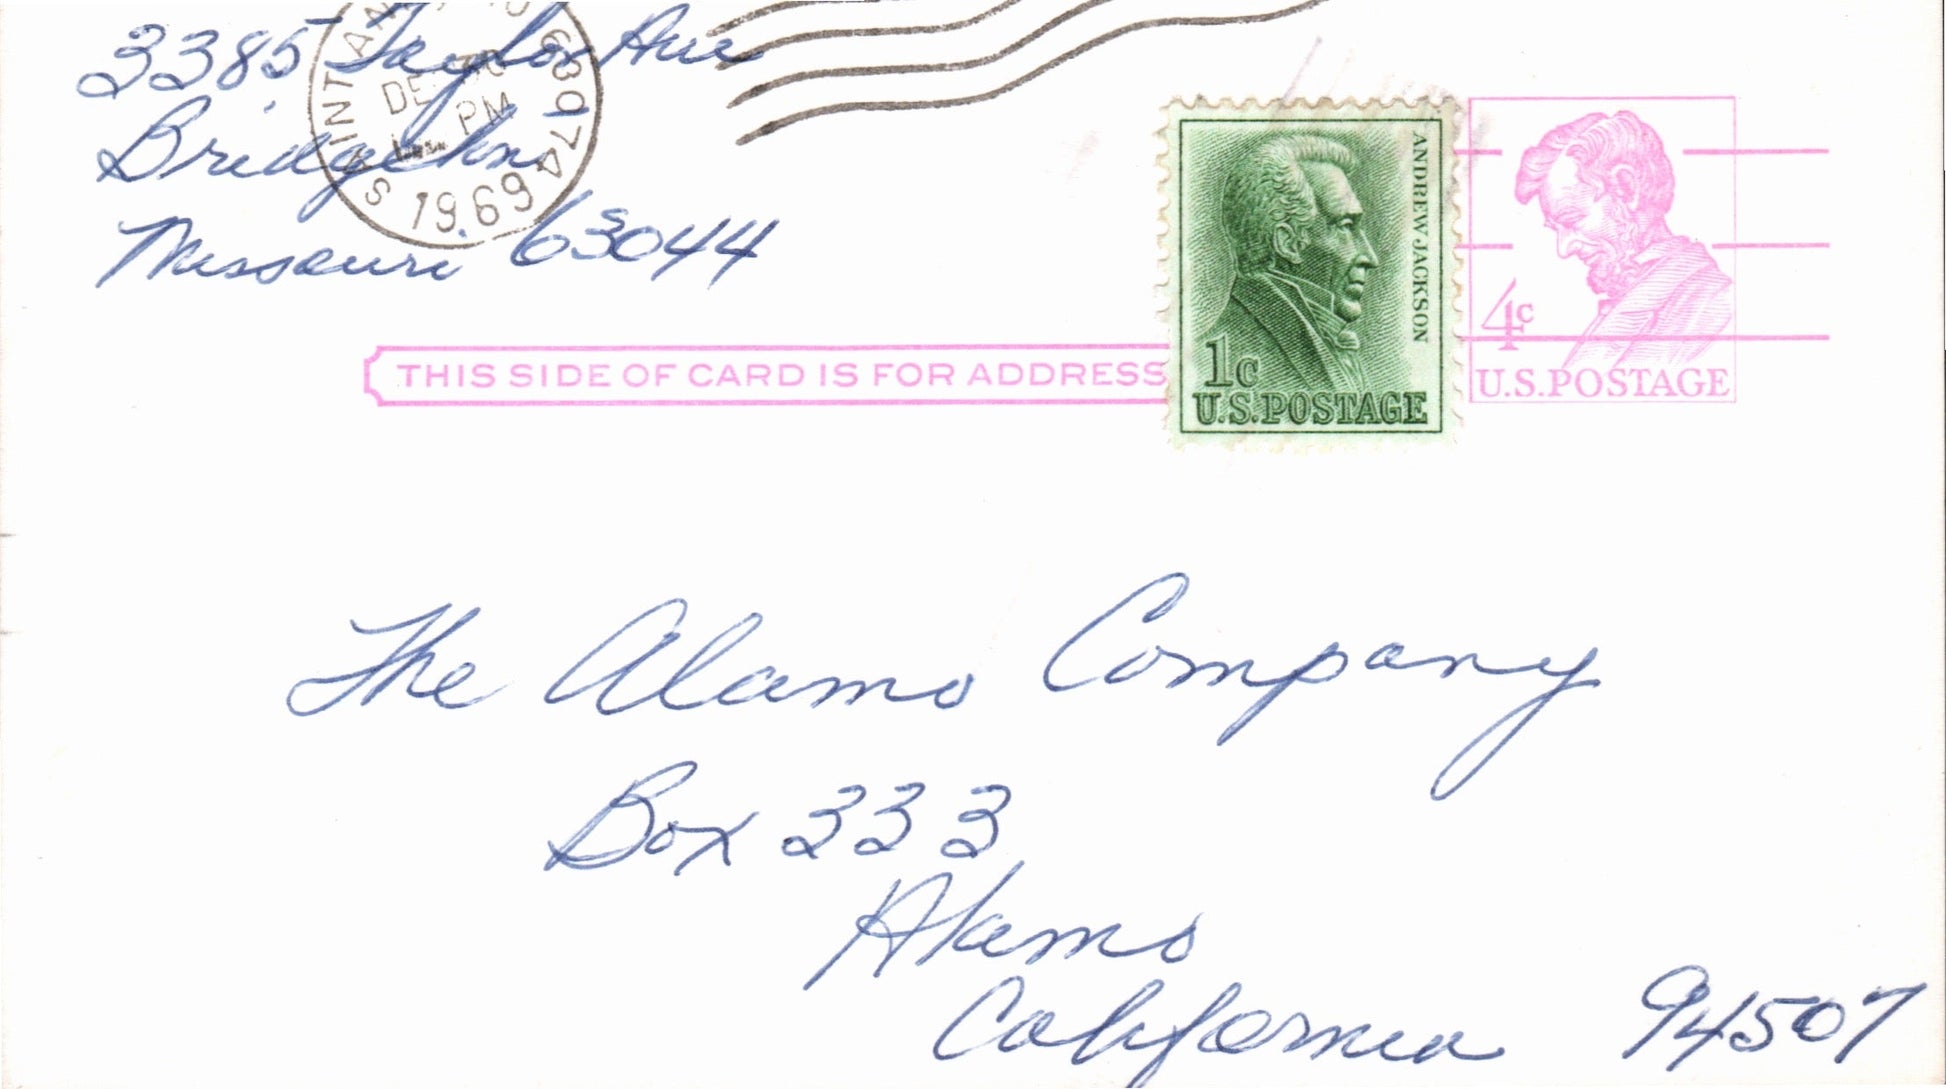 3385 Taylor Ave
Bridgeton
Missouri 63044
SAINT ANN
63074
PM
1969
ANDREW JACKSON
1c
U.S. POSTAGE
4c
U.S. POSTAGE
THIS SIDE OF CARD IS FOR ADDRESS
The Alamo Company
Box 333
Alamo
California 94507